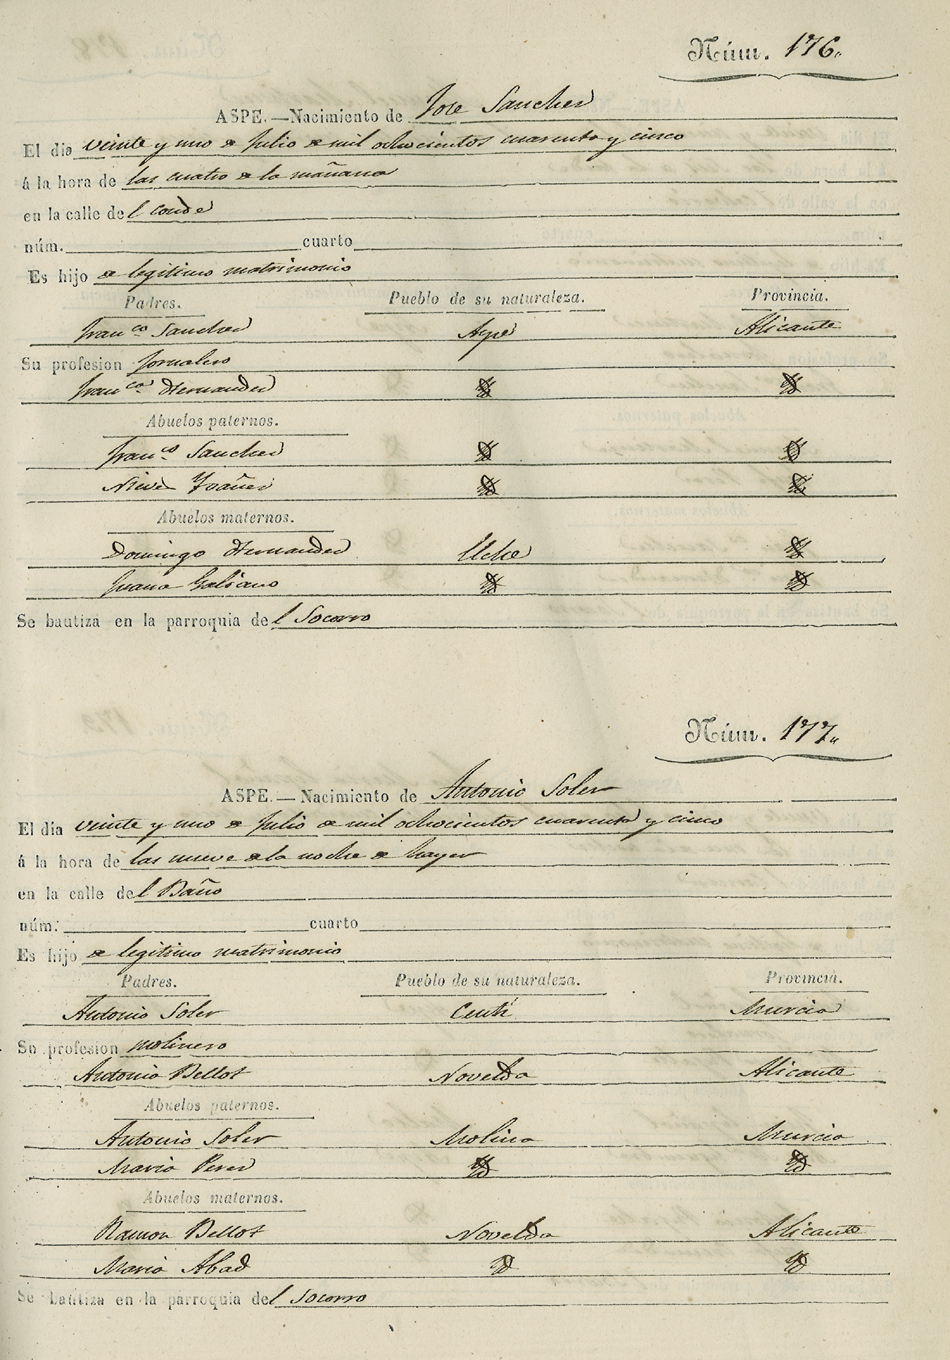 Núm. 176.
ASPE.—Nacimiento de Jose Sanchez
El dia veinte y uno de Julio de mil ochocientos cuarenta y cinco
á la hora de las cuatro de la mañana
en la calle del Conde
núm. cuarto
Es hijo de legitimo matrimonio
Padres. Pueblo de su naturaleza. Provincia.
Franco Sanchez Aspe Alicante
Su profesion Jornalero
Franca Hernandez Yd Yd
Abuelos paternos.
Franco Sanchez Yd Yd
Nieves Yvañez Yd Yd
Abuelos maternos.
Domingo Hernandez Elche Yd
Juana Galiano Yd Yd
Se bautiza en la parroquia del Socorro
Núm. 177.
ASPE.—Nacimiento de Antonio Soler
El dia veinte y uno de Julio de mil ochocientos cuarenta y cinco
á la hora de las nueve de la noche de hayer
en la calle del Baño
núm. cuarto
Es hijo de legitimo matrimonio
Padres. Pueblo de su naturaleza. Provincia.
Antonio Soler Ceutí Murcia
Su profesion molinero
Antonia Bellot Novelda Alicante
Abuelos paternos.
Antonio Soler Molina Murcia
Maria Perez Yd Yd
Abuelos maternos.
Ramon Bellot Novelda Alicante
Maria Abad Yd Yd
Se bautiza en la parroquia del Socorro